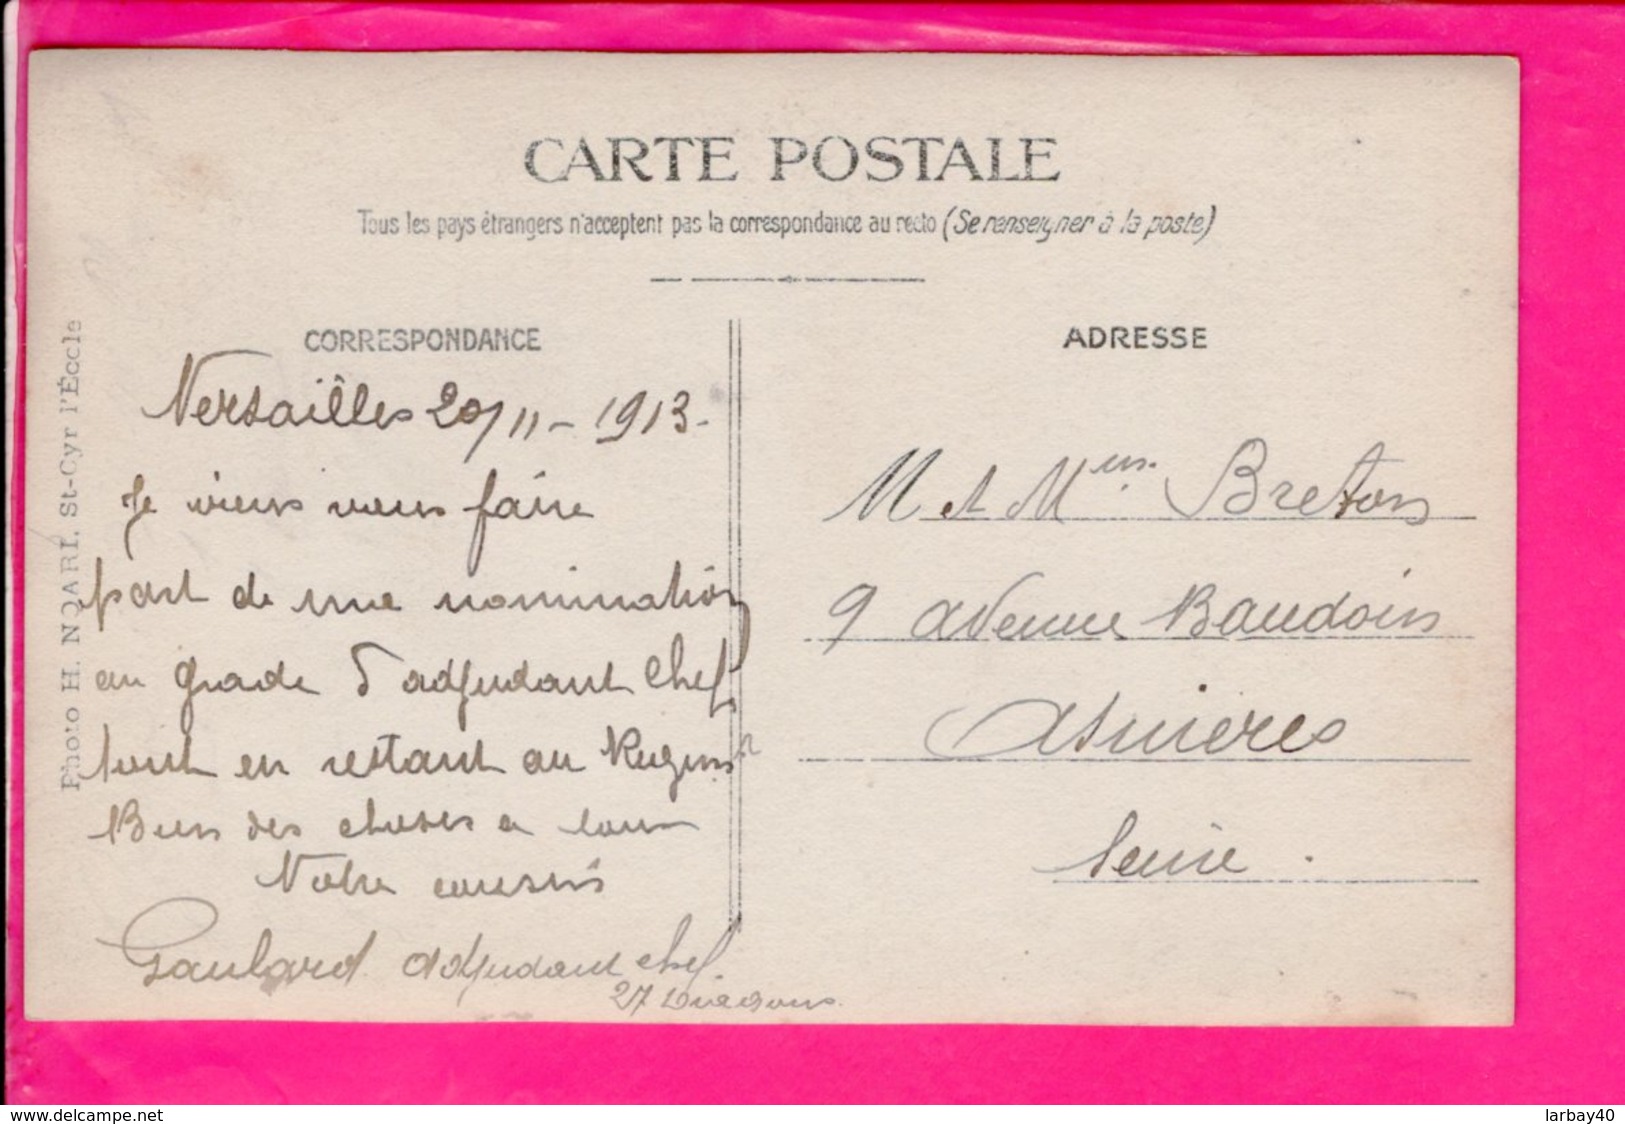 CARTE POSTALE
Tous les pays étrangers n'acceptent pas la correspondance au recto (Se renseigner à la poste)
CORRESPONDANCE
Versailles 20/11 - 1913.
Je viens vous faire
part de ma nomination
au grade d'adjudant chef
tout en restant au Regimt
Bien des choses a tous
Votre cousin
Gaulard adjudant chef.
27 Dragons.
ADRESSE
M et Mme Breton
9 avenue Baudoin
Asnières
Seine.
Photo H. NOARI. St-Cyr l'École
www.delcampe.net
larbay40